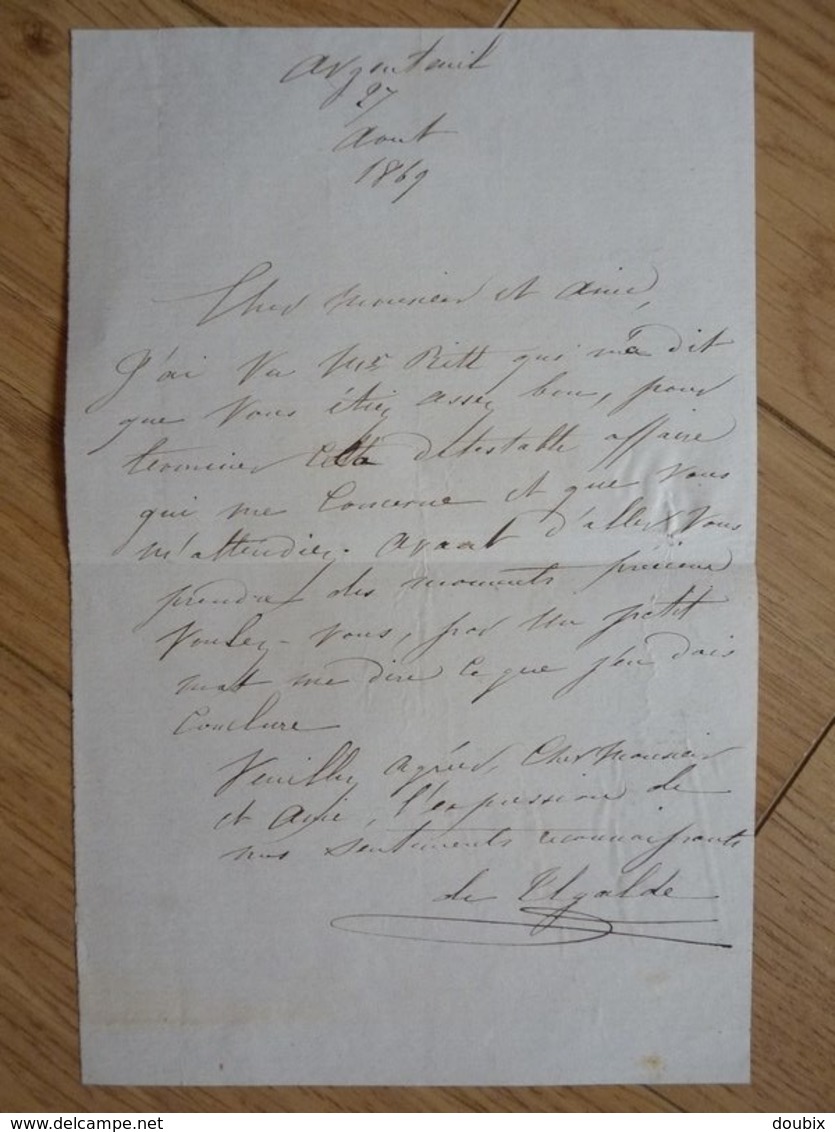 Argenteuil
27
Aout
1869
Cher Monsieur et Ami,
J'ai Vu Mr Ritt qui m'a dit
que Vous étiez assez bon, pour
terminer cette détestable affaire
qui me Concerne et que Vous
m'attendiez. Avant d'aller Vous
prendre des moments précieux
Voulez-vous, par un petit
mot me dire ce que j'en dois
Conclure
Veuillez agréer, Cher Monsieur
et Ami, l'expression de
mes sentiments reconnaissants
de Ugalde
www.delcampe.net
doubix